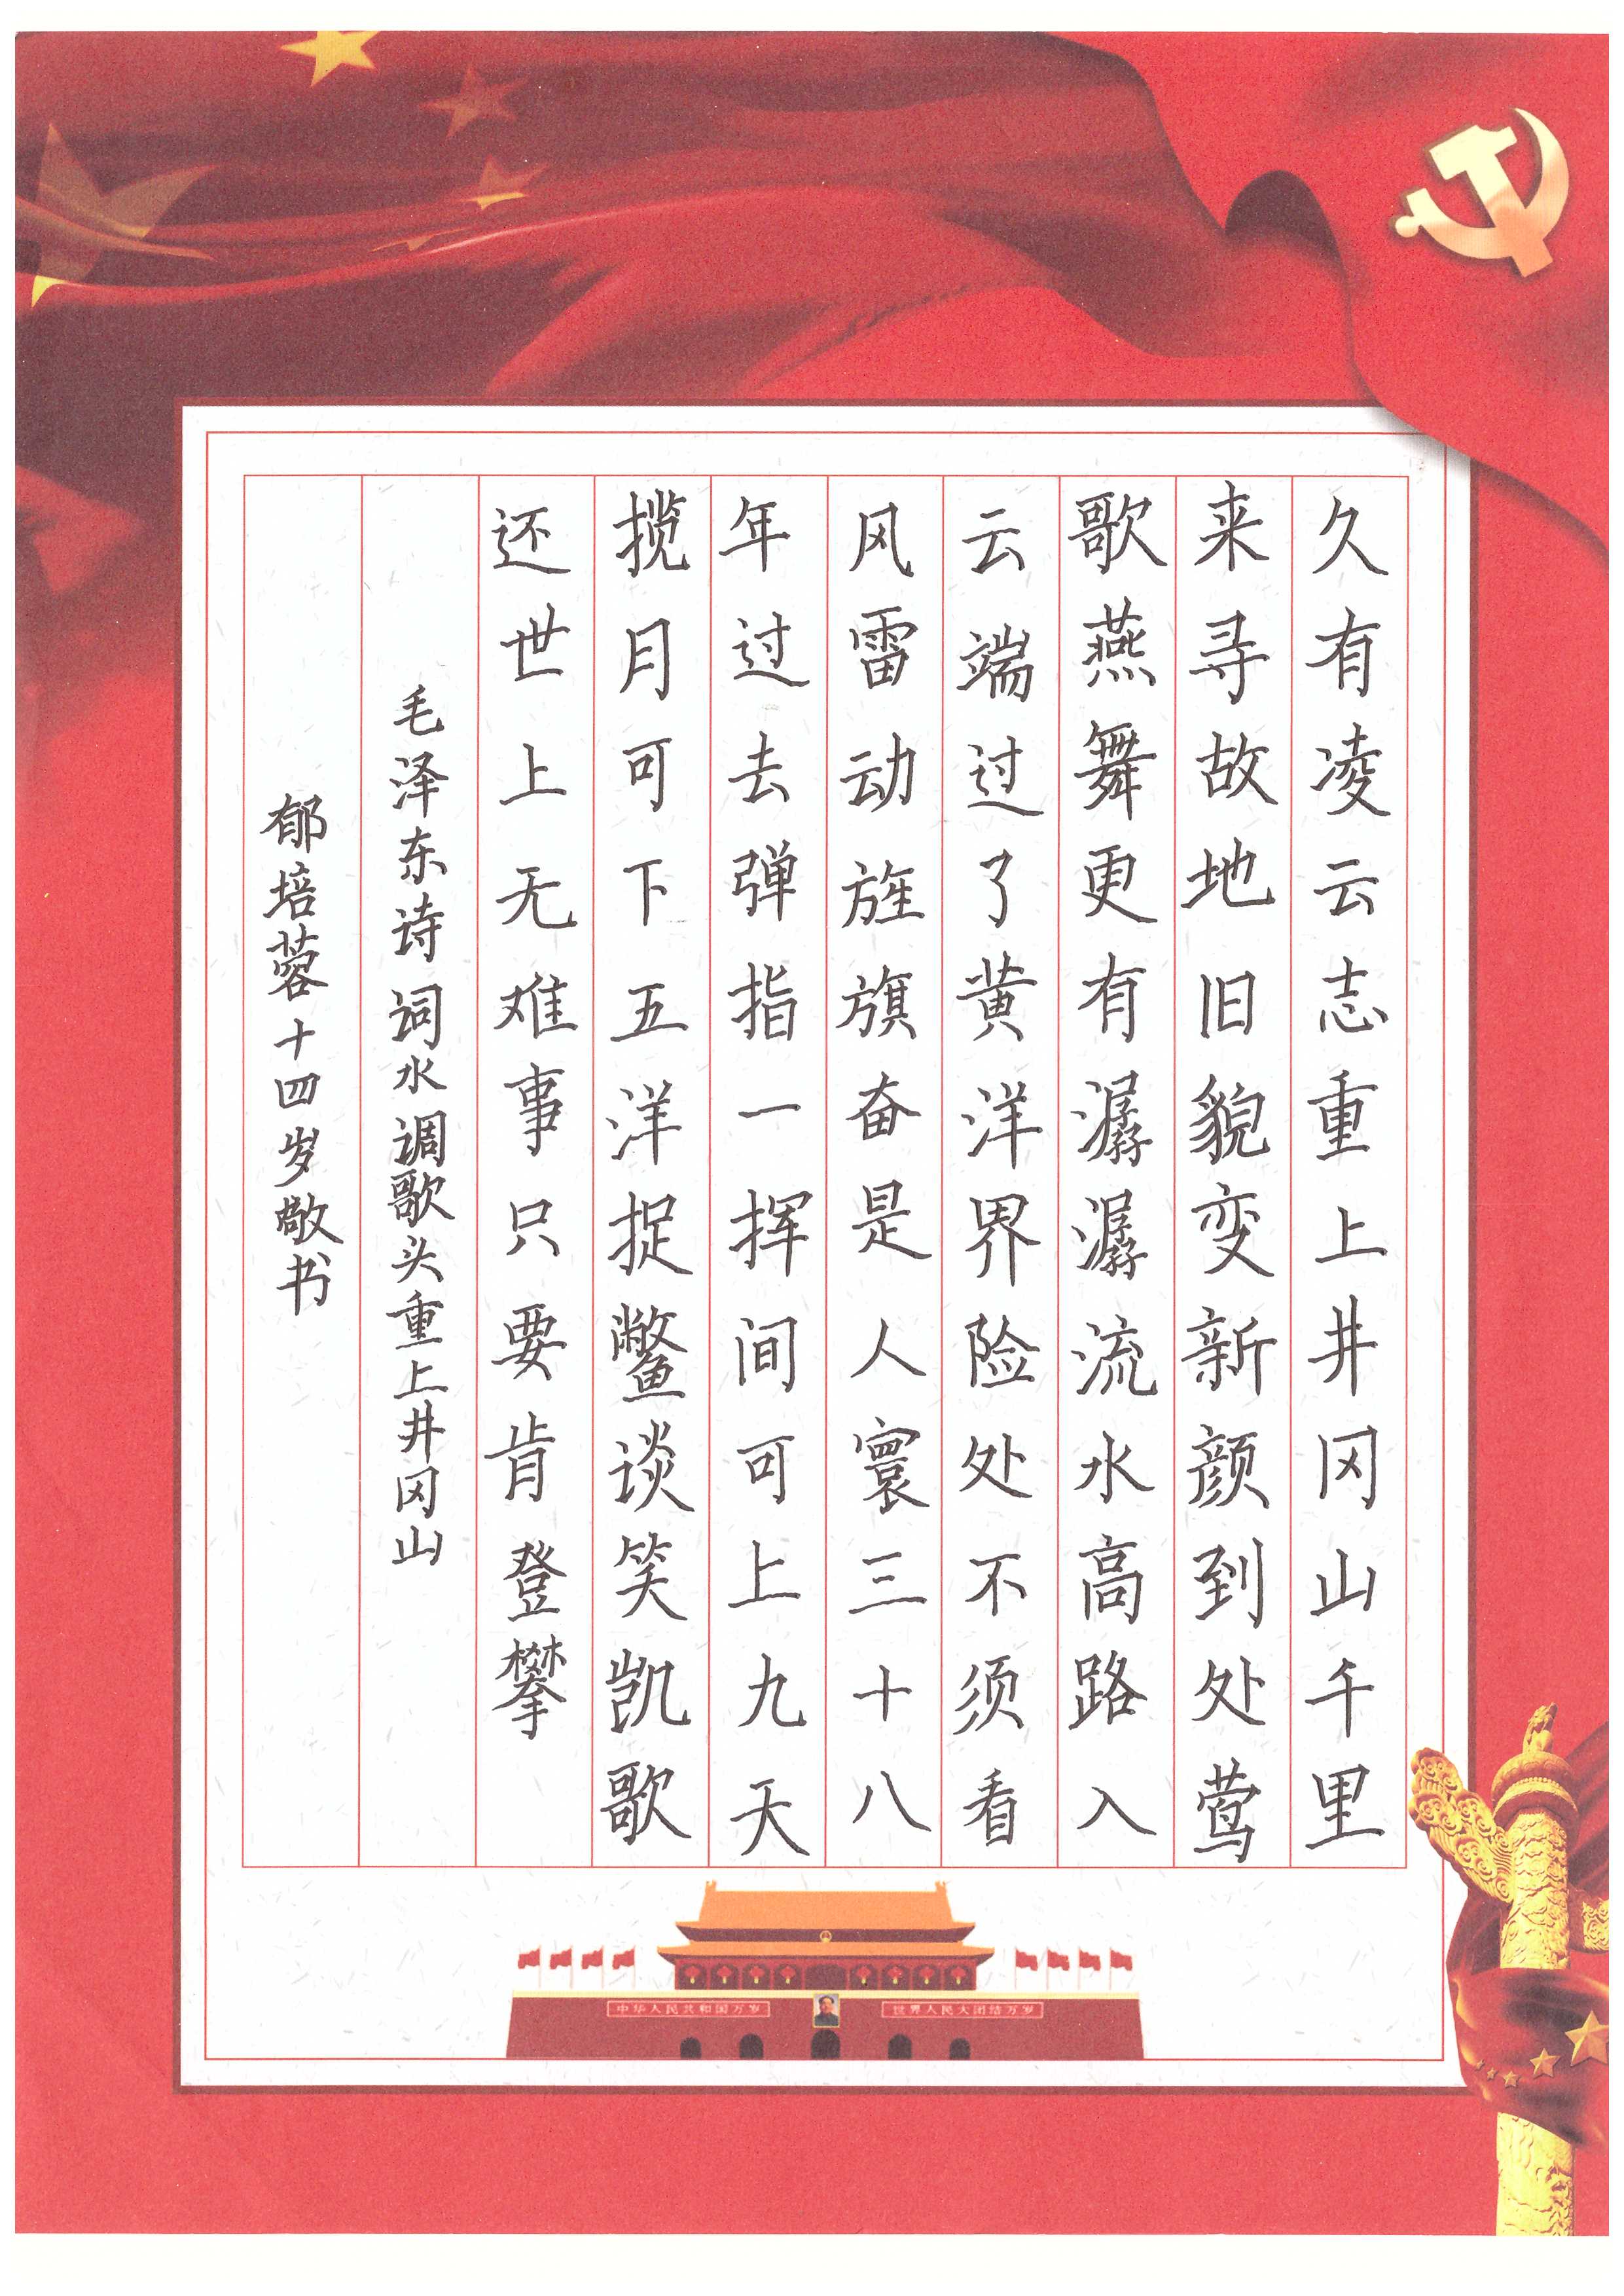 久有凌云志重上井冈山千里
来寻故地旧貌变新颜到处莺
歌燕舞更有潺潺流水高路入
云端过了黄洋界险处不须看
风雷动旌旗奋是人寰三十八
年过去弹指一挥间可上九天
揽月可下五洋捉鳖谈笑凯歌
还世上无难事只要肯登攀
毛泽东诗词水调歌头重上井冈山
郁培蓉十四岁敬书
中华人民共和国万岁
世界人民大团结万岁